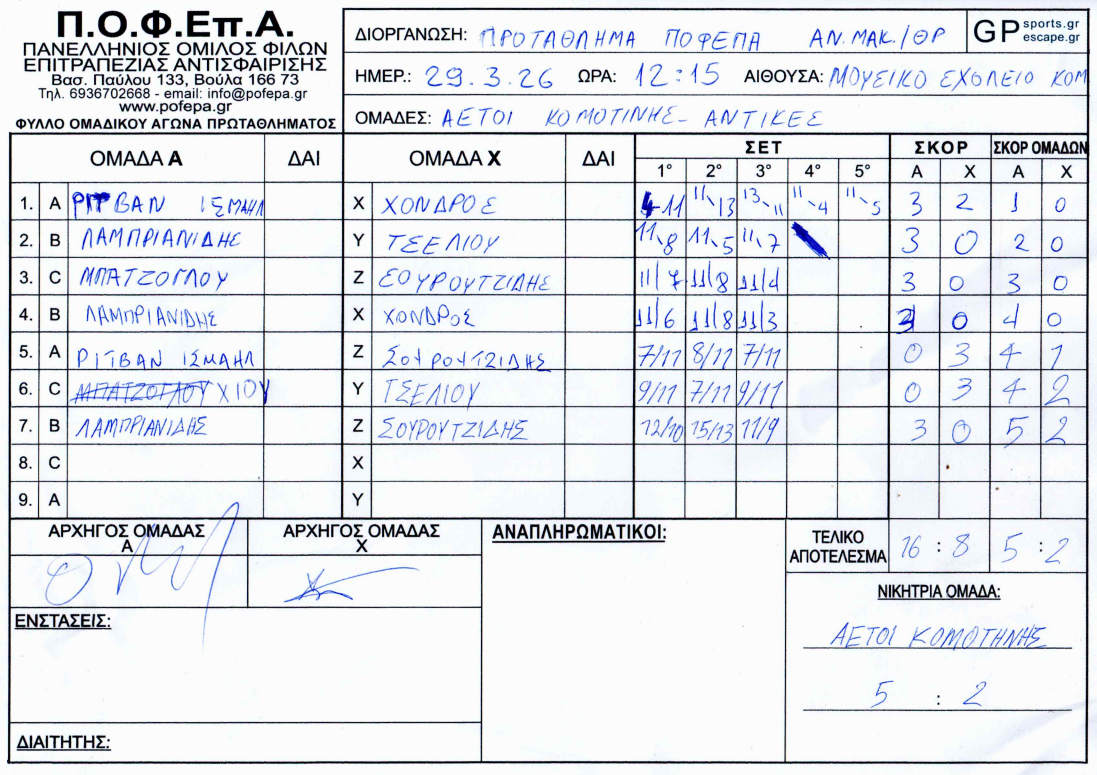 Π.Ο.Φ.Επ.Α.
ΠΑΝΕΛΛΗΝΙΟΣ ΟΜΙΛΟΣ ΦΙΛΩΝ
ΕΠΙΤΡΑΠΕΖΙΑΣ ΑΝΤΙΣΦΑΙΡΙΣΗΣ
Βασ. Παύλου 133, Βούλα 166 73
Τηλ. 6936702668 - email: info@pofepa.gr
www.pofepa.gr
ΦΥΛΛΟ ΟΜΑΔΙΚΟΥ ΑΓΩΝΑ ΠΡΩΤΑΘΛΗΜΑΤΟΣ
ΔΙΟΡΓΑΝΩΣΗ: ΠΡΟΤΑΘΛΗΜΑ ΠΟΦΕΠΑ ΑΝ.ΜΑΚ./ΘΡ
GP sports.gr escape.gr
ΗΜΕΡ.: 29.3.26 ΩΡΑ: 12:15 ΑΙΘΟΥΣΑ: ΜΟΥΣΙΚΟ ΣΧΟΛΕΙΟ ΚΟΜ
ΟΜΑΔΕΣ: ΑΕΤΟΙ ΚΟΜΟΤΙΝΗΣ - ΑΝΤΙΚΕΣ
ΟΜΑΔΑ Α ΔΑΙ ΟΜΑΔΑ Χ ΔΑΙ ΣΕΤ ΣΚΟΡ ΣΚΟΡ ΟΜΑΔΩΝ
1° 2° 3° 4° 5° Α Χ Α Χ
1. Α ΡΙΤΒΑΝ ΙΣΜΑΗΛ Χ ΧΟΝΔΡΟΣ 4-11 11-13 13-11 11-4 11-5 3 2 1 0
2. Β ΛΑΜΠΡΙΑΝΙΔΗΣ Υ ΤΣΕΛΙΟΥ 11-8 11-5 11-7 3 0 2 0
3. C ΜΠΑΤΖΟΓΛΟΥ Ζ ΣΟΥΡΟΥΤΖΙΔΗΣ 11/7 11/8 11/4 3 0 3 0
4. Β ΛΑΜΠΡΙΑΝΙΔΗΣ Χ ΧΟΝΔΡΟΣ 11/6 11/8 11/3 3 0 4 0
5. Α ΡΙΤΒΑΝ ΙΣΜΑΗΛ Ζ ΣΟΥΡΟΥΤΖΙΔΗΣ 7/11 8/11 7/11 0 3 4 1
6. C ΜΠΑΤΖΟΓΛΟΥ ΧΙΟΥ Υ ΤΣΕΛΙΟΥ 9/11 7/11 9/11 0 3 4 2
7. Β ΛΑΜΠΡΙΑΝΙΔΗΣ Ζ ΣΟΥΡΟΥΤΖΙΔΗΣ 12/10 15/13 11/9 3 0 5 2
8. C Χ
9. Α Υ
ΑΡΧΗΓΟΣ ΟΜΑΔΑΣ Α ΑΡΧΗΓΟΣ ΟΜΑΔΑΣ Χ ΑΝΑΠΛΗΡΩΜΑΤΙΚΟΙ:
ΤΕΛΙΚΟ ΑΠΟΤΕΛΕΣΜΑ 16 : 8 5 : 2
ΝΙΚΗΤΡΙΑ ΟΜΑΔΑ:
ΕΝΣΤΑΣΕΙΣ:
ΑΕΤΟΙ ΚΟΜΟΤΗΝΗΣ
5 : 2
ΔΙΑΙΤΗΤΗΣ: